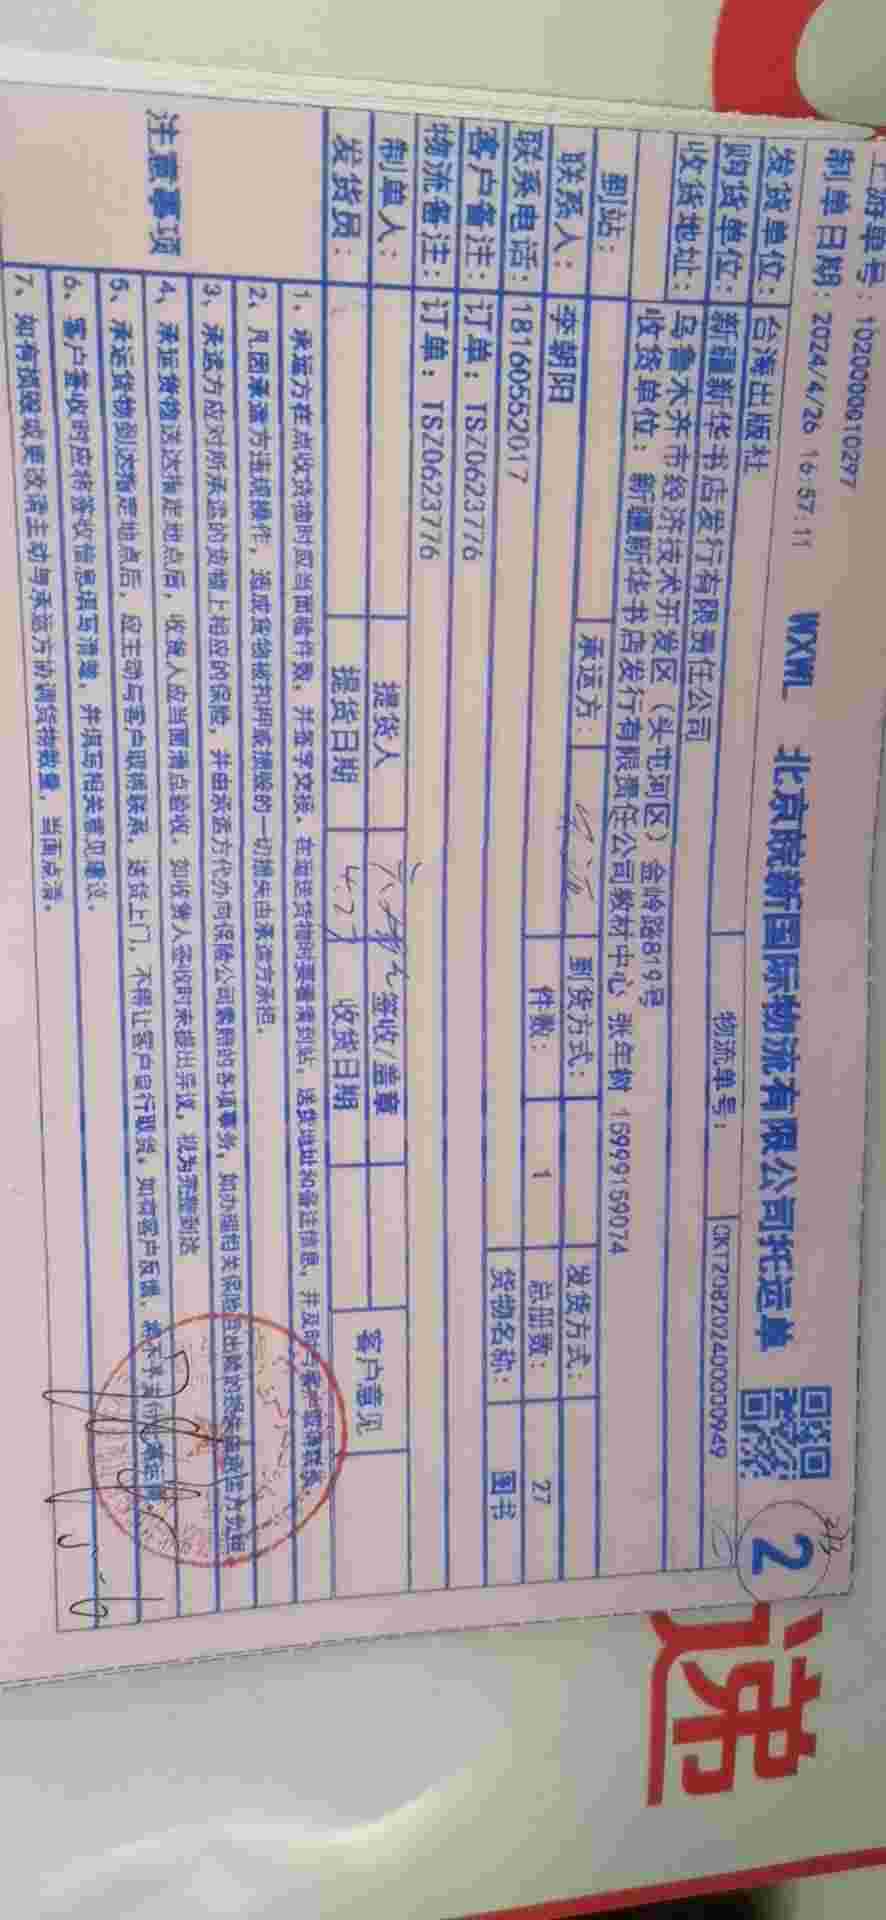 上游单号：102000010297
制单日期：2024/4/26 16:57:11 WXWL 北京皖新国际物流有限公司托运单 2
发货单位：台海出版社
购货单位：新疆新华书店发行有限责任公司 物流单号： CKT2082024000000949
收货地址：乌鲁木齐市经济技术开发区（头屯河区）金岭路819号
收货单位：新疆新华书店发行有限责任公司教材中心 张年树 15999159074
到站： 承运方： 到货方式： 发货方式：
联系人：李朝阳 件数： 1 总册数： 27
联系电话：18160552017 货物名称： 图书
客户备注：订单：TSZ0623776
物流备注：订单：TSZ0623776
制单人： 提货人 签收/盖章 客户意见
发货员： 提货日期 4.27 收货日期
注意事项
1、承运方在点收货物时应当面验件数，并签字交接。在运送货物时要看清到站、送货地址和备注信息，并及时与客户取得联系。
2、凡因承运方违规操作，造成货物被扣押或损毁的一切损失由承运方承担。
3、承运方应对所承运的货物上相应的保险，并由承运方代办向保险公司索赔的各项事务，如办理相关保险
4、承运货物送达指定地点后，收货人应当面清点验收，如收货人签收时未提出异议，视为完整到达
5、承运货物到达指定地点后，应主动与客户取得联系，送货上门，不得让客户自行取货，如有客户反馈，
6、客户签收时应将签收信息填写清楚，并填写相关意见建议。
7、如有损毁或更改请主动与承运方协调货物数量，当面点清。
递